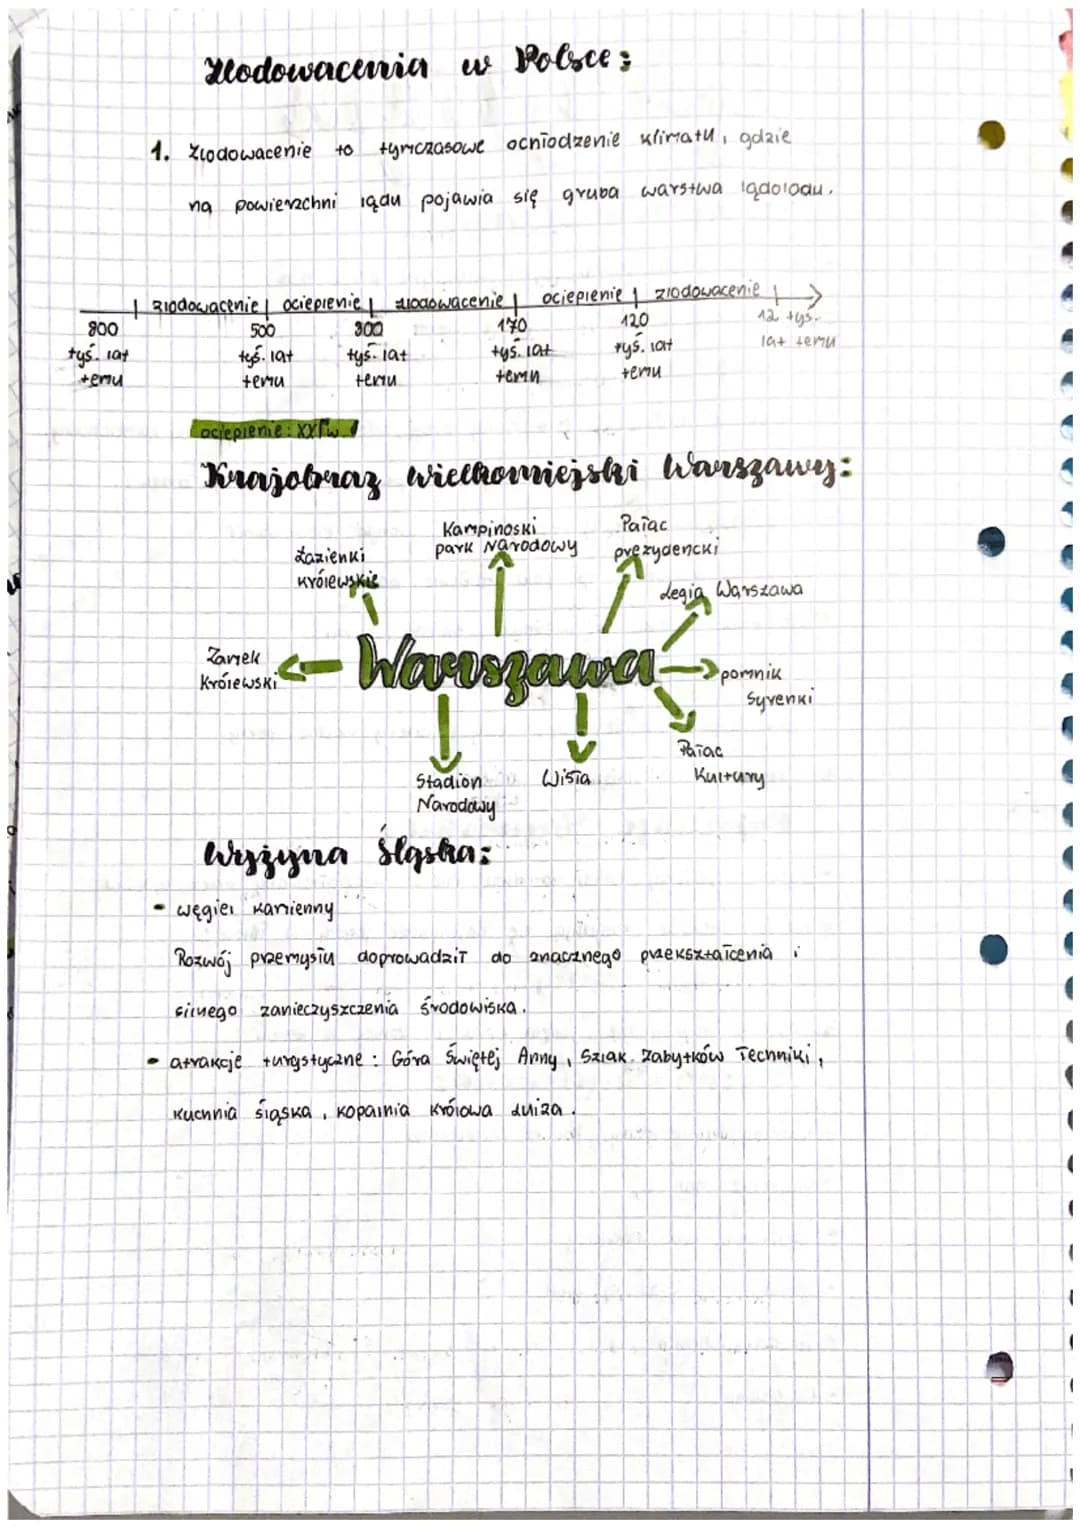 Zlodowacenia w Polsce:
1. Zlodowacenie to tymczasowe ochłodzenie klimatu, gdzie
na powierzchni lądu pojawia się gruba warstwa lądolodu.
zlodowacenie ocieplenie zlodowacenie ocieplenie zlodowacenie
800 500 300 170 120 12 tyś.
tyś. lat tyś. lat tyś. lat tyś. lat tyś. lat lat temu
temu temu temu temu temu
ocieplenie: XXI w.
Krajobraz wielkomiejski Warszawy:
Łazienki
Królewskie
Kampinoski
park Narodowy
Pałac
prezydencki
Legia Warszawa
Zamek
Królewski
Warszawa
pomnik
Syrenki
Stadion
Narodowy
Wisła
Pałac
Kultury
Wyżyna Śląska:
- węgiel kamienny
Rozwój przemysłu doprowadził do znacznego przekształcenia i
silnego zanieczyszczenia środowiska.
- atrakcje turystyczne: Góra Świętej Anny, Szlak Zabytków Techniki,
kuchnia śląska, kopalnia Królowa Luiza.